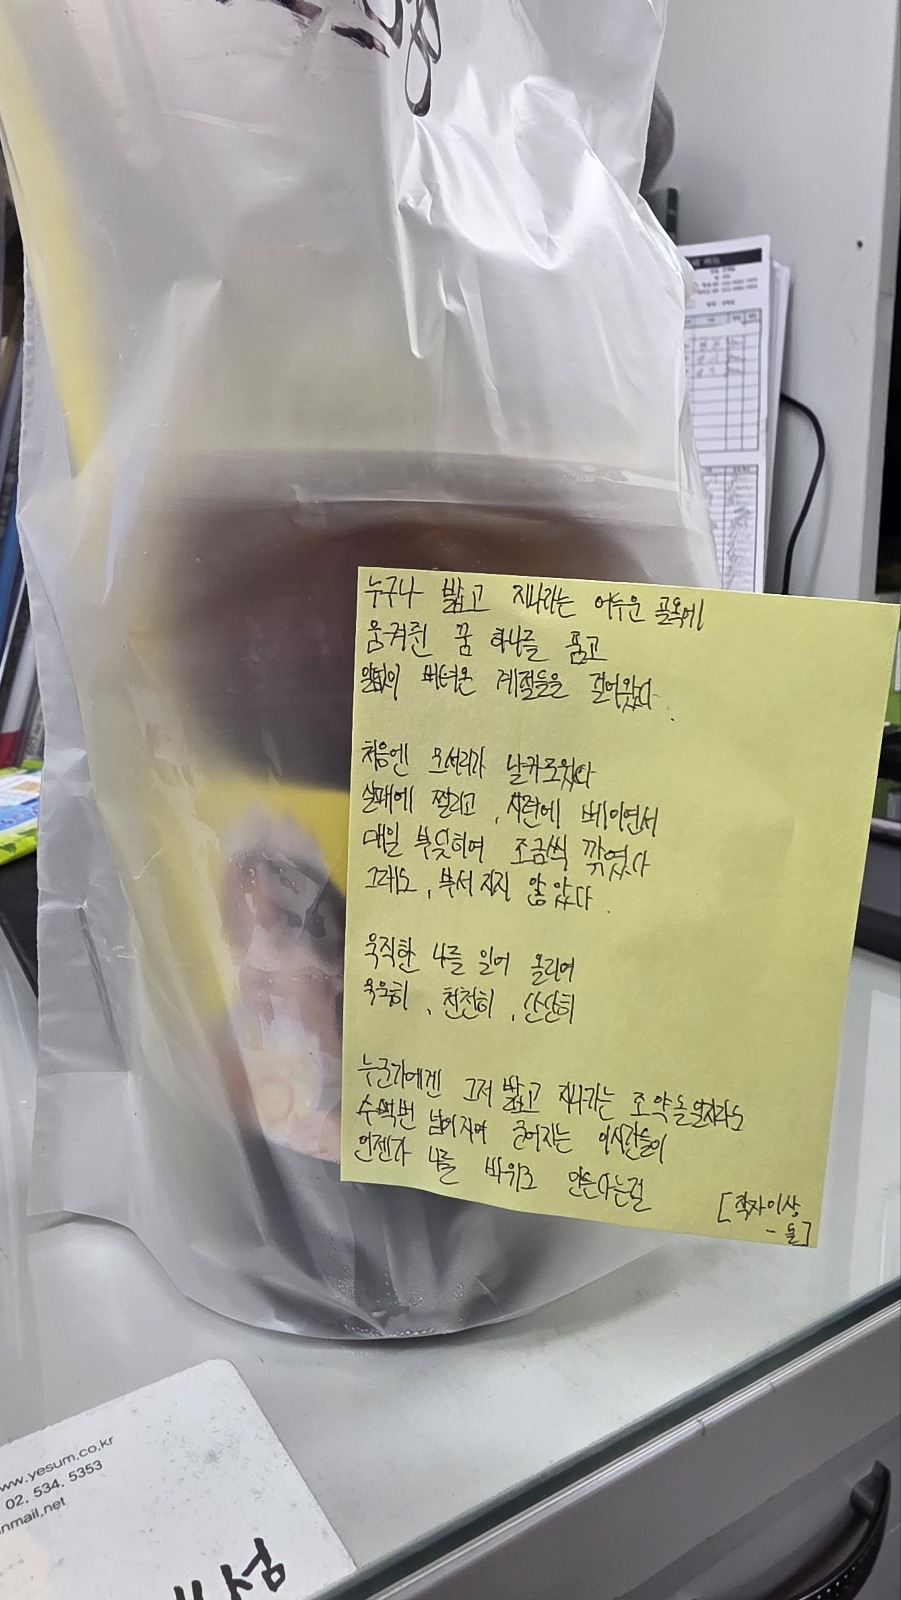 누구나 밟고 지나라는 어두운 골목에
움켜쥔 꿈 하나를 품고
말없이 버텨온 계절들을 걸어왔다.
처음엔 모서리가 날카로웠다
실패에 찔리고, 시련에 베이면서
매일 부딪히며 조금씩 깎였다
그래도, 부서지지 않았다.
묵직한 나를 밀어 올리며
묵묵히, 천천히, 단단히
누군가에겐 그저 밟고 지나가는 조약돌일지라도
수백번 넘어지며 굳어지는 이시간들이
언젠가 나를 바위로 만든다는걸
[작자이상
- 돌]
ww.yesum.co.kr
02. 534. 5353
nmail.net